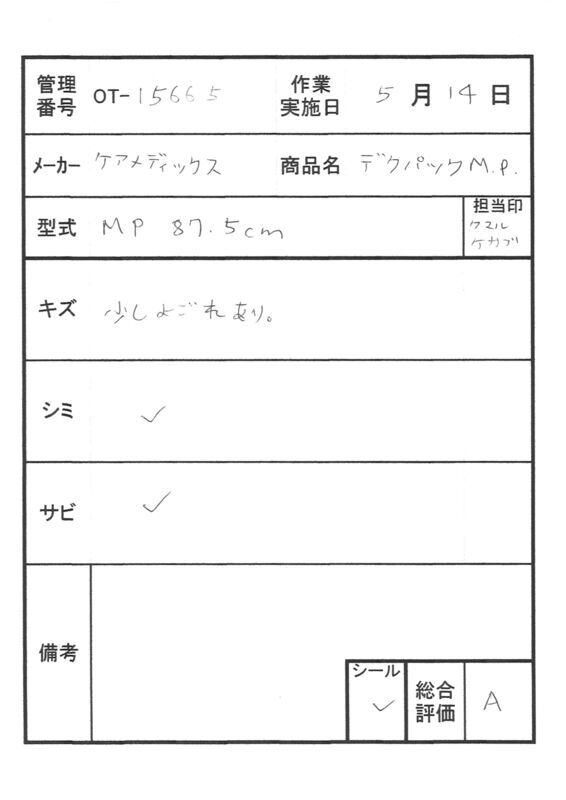 管理番号 OT-15665 作業実施日 5月14日
メーカー ケアメディックス 商品名 デクパックM.P.
型式 MP 87.5cm 担当印
クスル
ケカブ
キズ 少しよごれあり。
シミ ✓
サビ ✓
備考
シール ✓ 総合評価 A